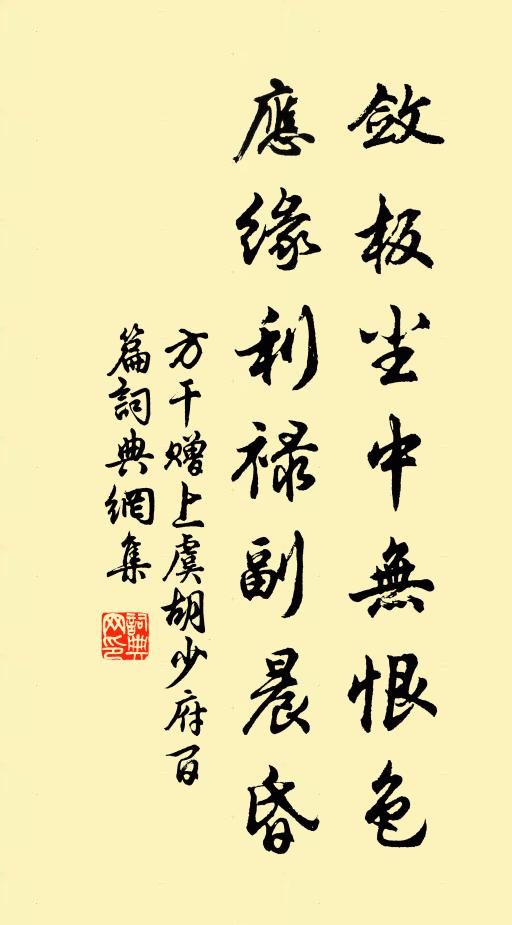 斂板尘中無恨色
應緣利禄副晨昏
方干赠上虞胡少府百
篇詞典網集
詞典网印